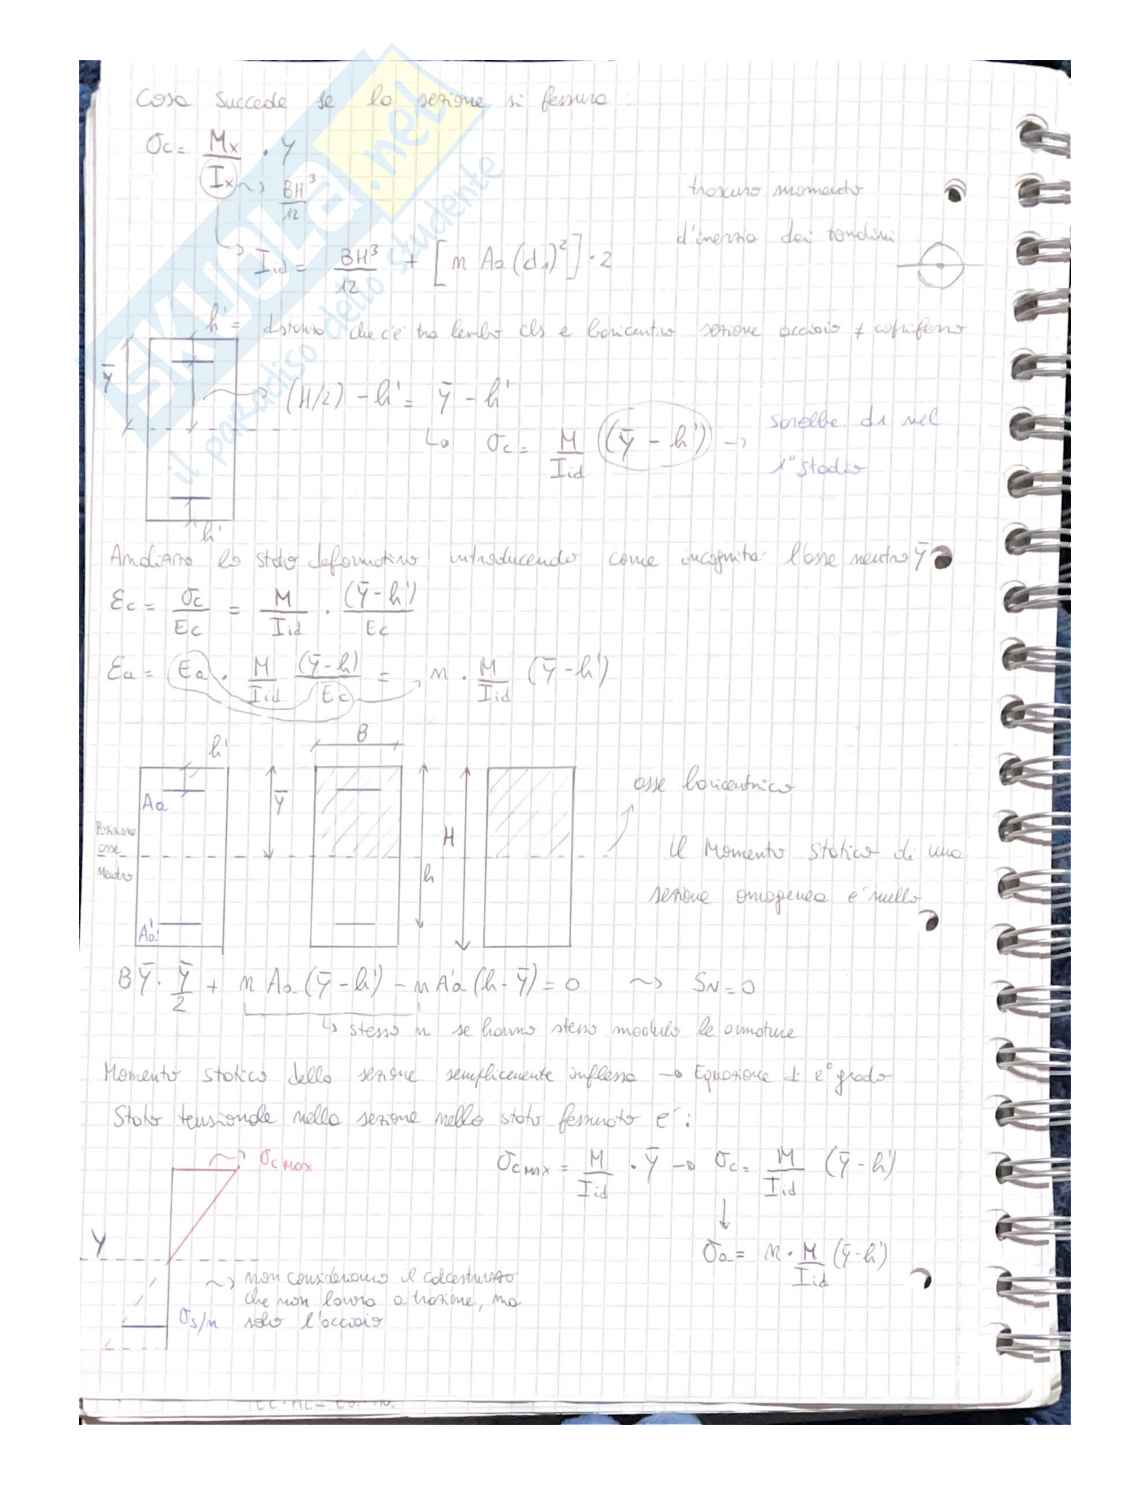 Cosa succede se la sezione si fessura :
σc = Mx / Ix · y
BH³ / 12
Iid = BH³ / 12 + [n Aa (d1)²] · 2
momento
d'inerzia dei tondini
h' = distanza che c'è tra lembo cls e baricentro sezione acciaio ≠ copriferro
ȳ
(H/2) - h' = ȳ - h'
σc = M / Iid ((ȳ - h')) → sarebbe di nel
1° stadio
h'
lo stato deformativo introducendo come incognita l'asse neutro ȳ
εc = σc / Ec = M / Iid · (ȳ - h') / Ec
εa = Ea · M / Iid (ȳ - h) / Ec = n · M / Iid (ȳ - h')
h'
B
Aa
ȳ
H
h
asse baricentrico
Posizione
asse
Neutro
Aa'
Il Momento Statico di una
sezione omogenea è nullo
B ȳ · ȳ / 2 + n Aa (ȳ - h') - n A'a (h - ȳ) = 0 ~> SN = 0
↳ stesso n se hanno stesso modulo le armature
Momento statico della sezione semplicemente inflessa → Equazione 2° grado
Stato tensionale nella sezione nello stato fessurato è :
σc max
σc max = M / Iid · ȳ → σc = M / Iid (ȳ - h')
↓
σa = n · M / Iid (ȳ - h')
Y
~> non consideriamo il calcestruzzo
che non lavora a trazione, ma
solo l'acciaio
σs/n
SKUOLA.net
il paradiso dello studente